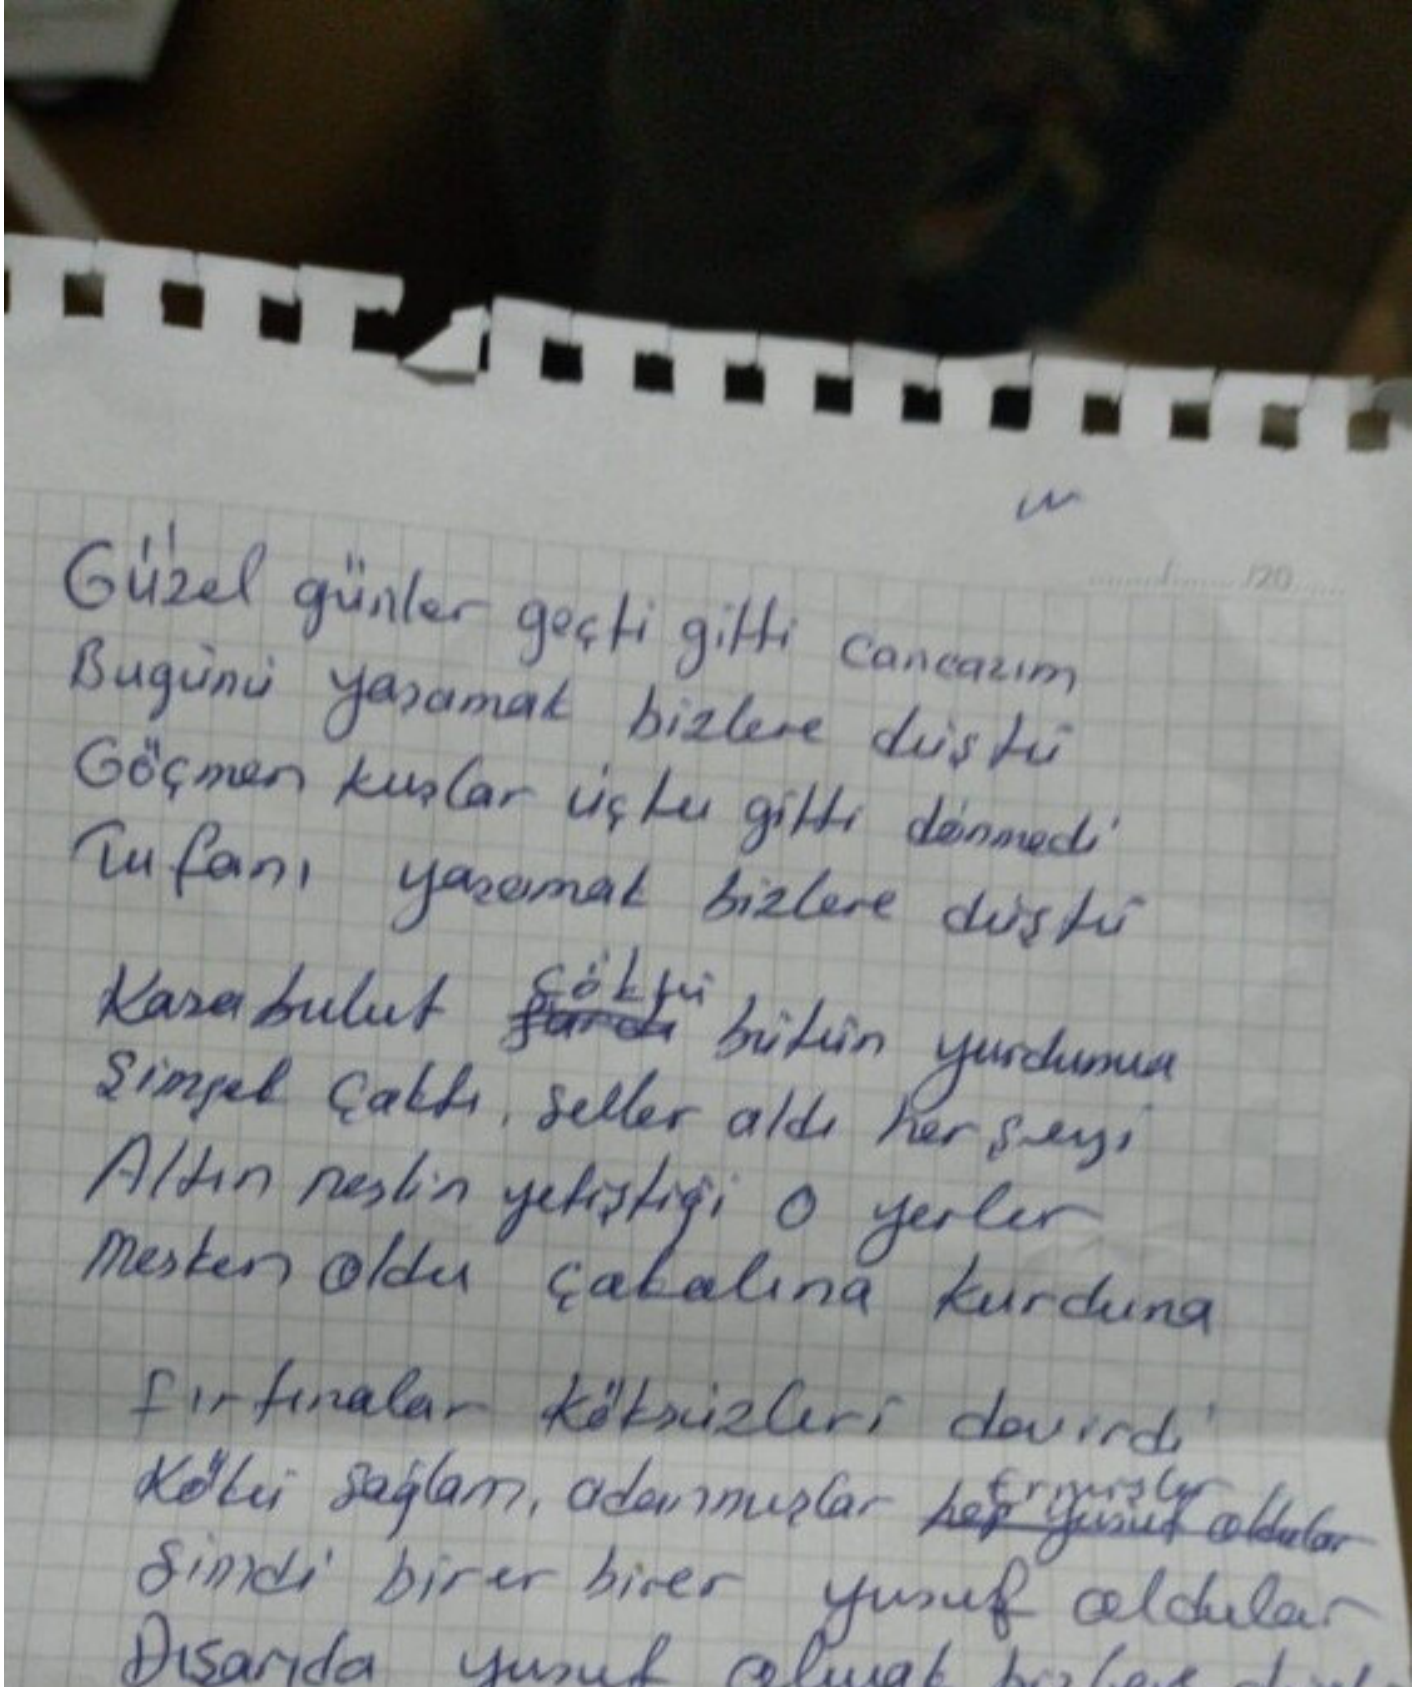 ..../..../20....
Güzel günler geçti gitti cancazım
Bugünü yaşamak bizlere düştü
Göçmen kuşlar üçtu gitti dönmedi
Tufanı yaşamak bizlere düştü
Karabulut çöktü bütün yurduma
Şimşek çaktı, seller aldı her şeyi
Altın neslin yetiştiği o yerler
Mesken oldu çakalına kurduna
Fırtınalar köksüzleri devirdi
Kökü sağlam, adanmışlar ermişler
hep yusuf oldular
Şimdi birer birer yusuf oldular
Dışarıda yusuf olmak bizlere